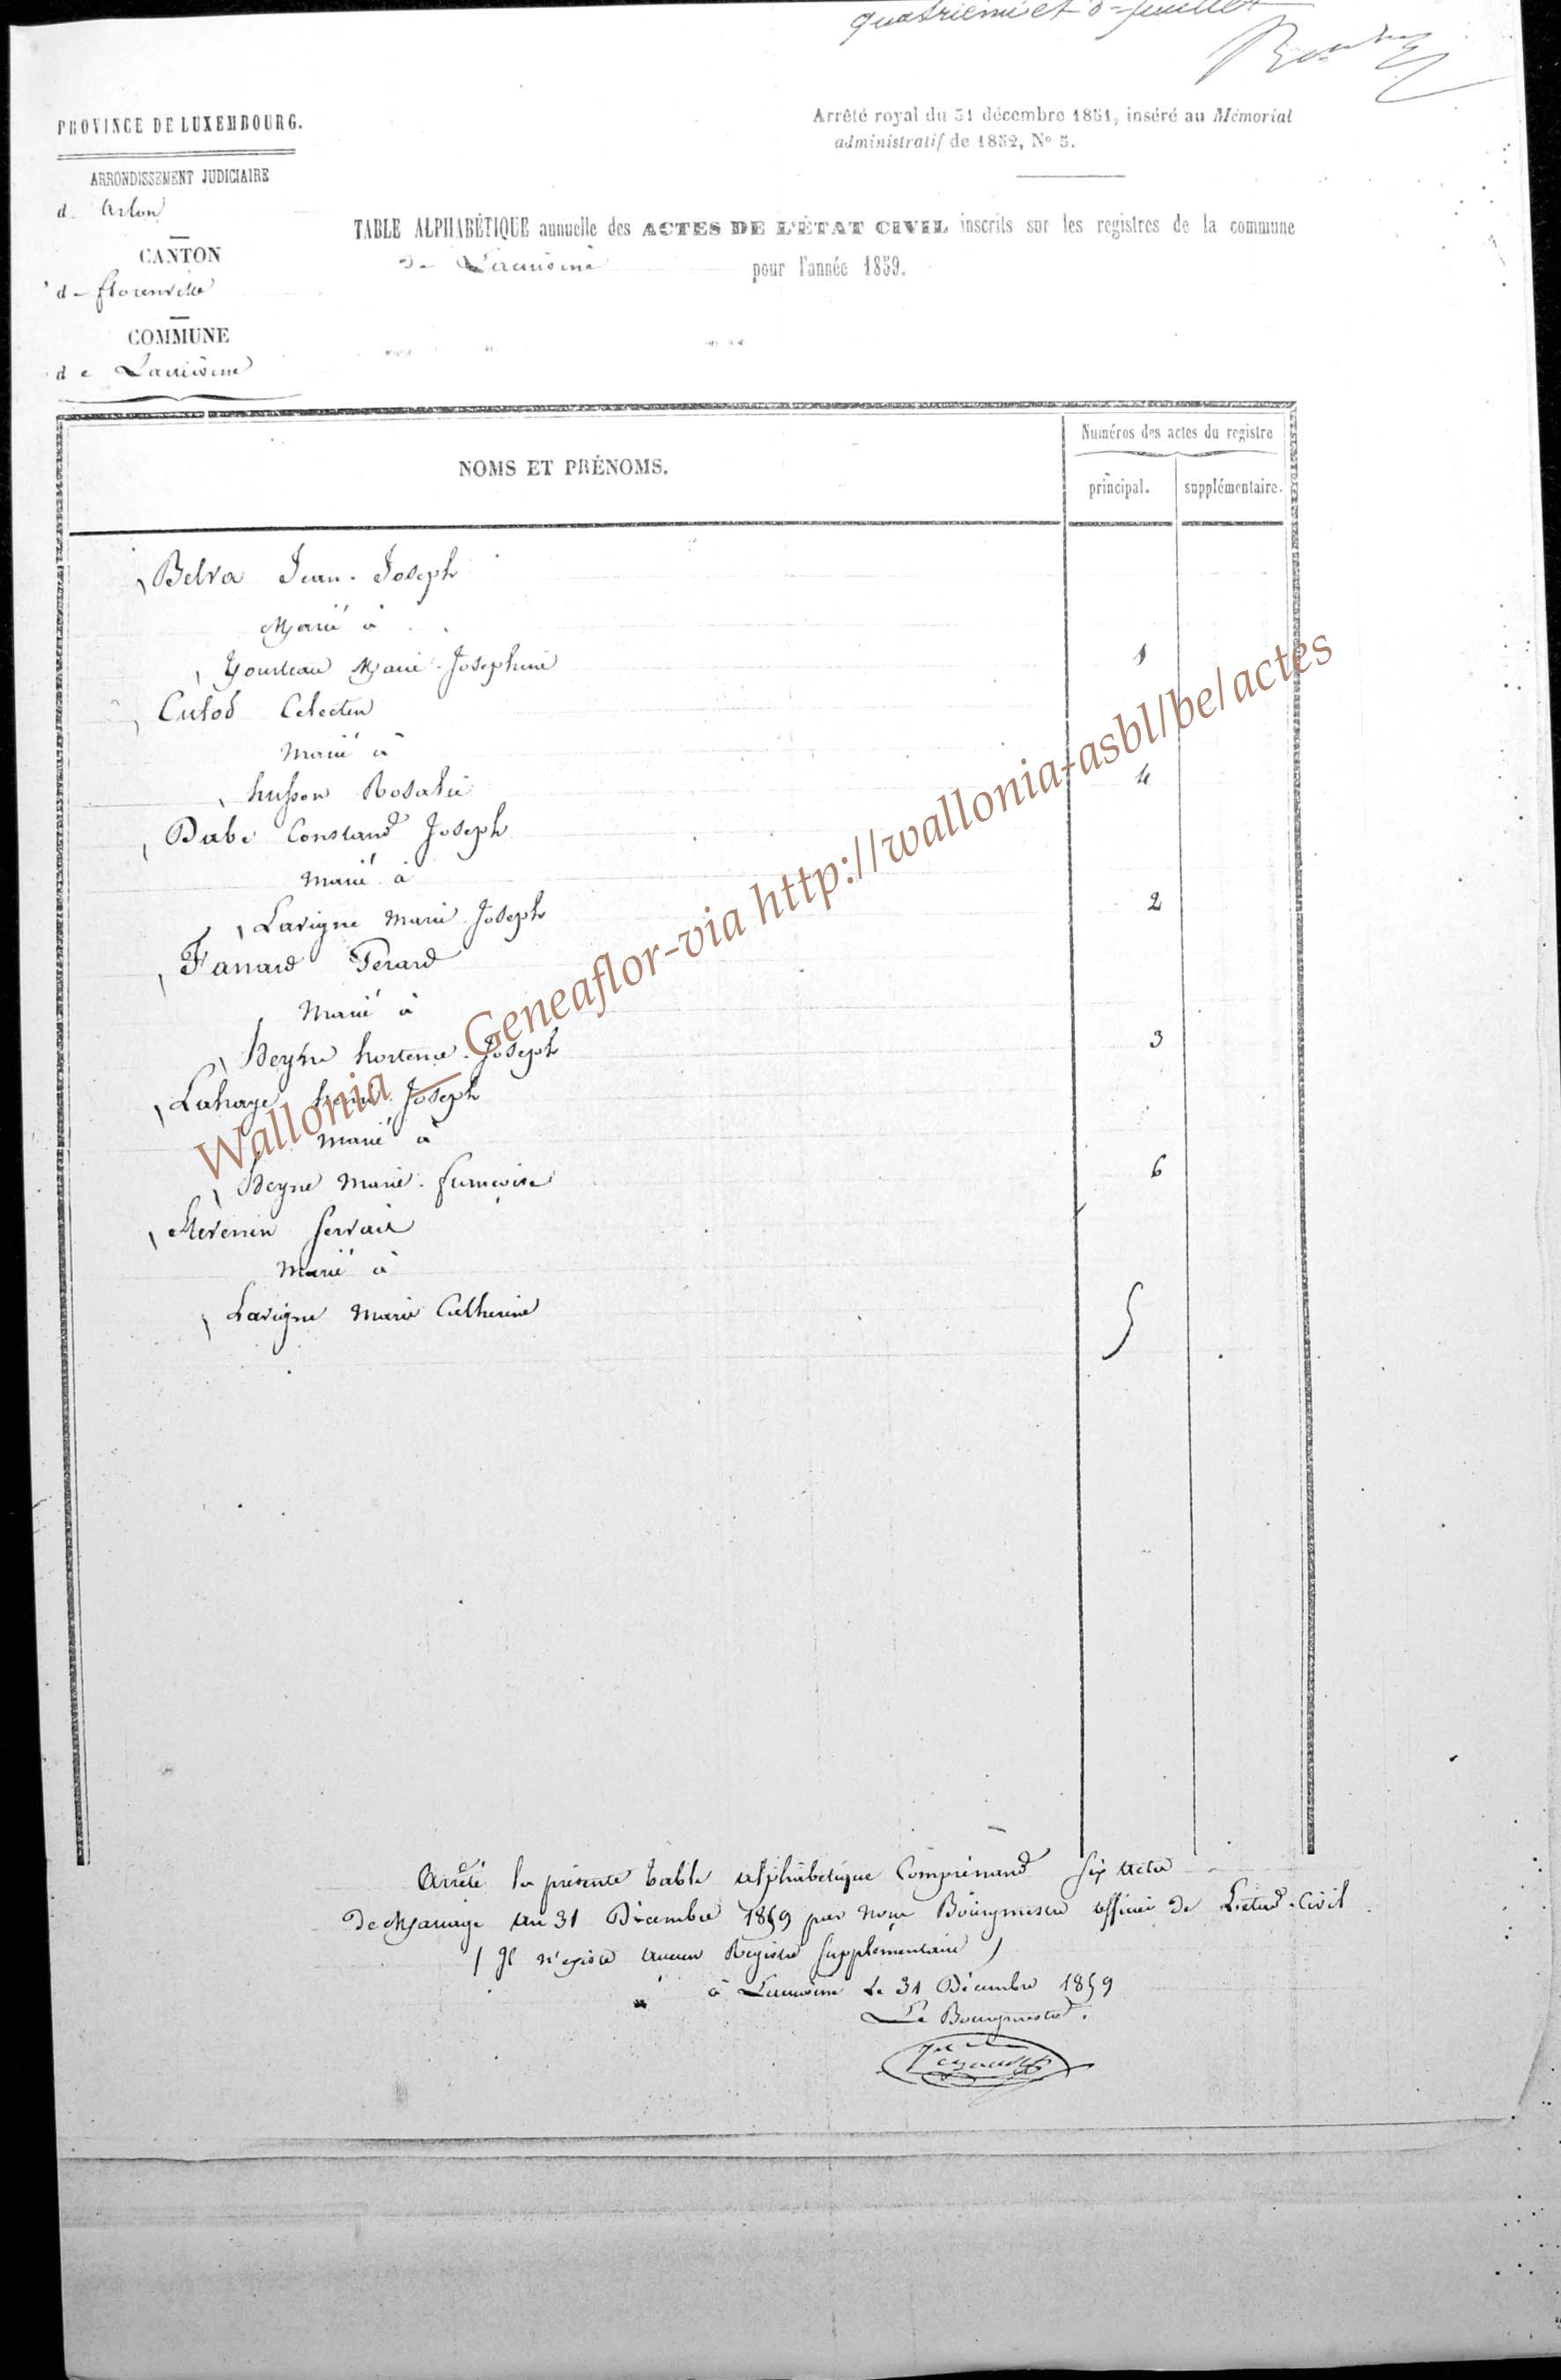 quatrième et
PROVINCE DE LUXEMBOURG.
Arrêté royal du 31 décembre 1851, inséré au Mémorial
administratif de 1852, N° 5.
ARRONDISSEMENT JUDICIAIRE
d'Arlon
CANTON
de florenville
COMMUNE
de Lacuisine
TABLE ALPHABÉTIQUE annuelle des ACTES DE L'ÉTAT CIVIL inscrits sur les registres de la commune
de Lacuisine pour l'année 1859.
NOMS ET PRÉNOMS.
Numéros des actes du registre
principal. supplémentaire.
Belva Jean-Joseph
Marié à
Marie-Josephine 1
Culot Celectin
Marié à
husson Rosalie 4
Dabe Constand Joseph
Marié à
Lavigne Marie Joseph 2
Fanard Perard
Marié à
hortense Joseph 3
Lahaye henri Joseph
Marié à
Marie-francoise 6
servais
Marié à
Lavigne Marie Catherine 5
Arrêté la présente table alphabétique Comprenand six actes
de Mariage au 31 Décembre 1859 par nous Bourgmestre officier de L'etat-Civil
( Il n'existe aucun Registre supplémentaire )
à Lacuisine Le 31 Décembre 1859
Le Bourgmestre.
Wallonia — Geneaflor-via http://wallonia-asbl/be/actes